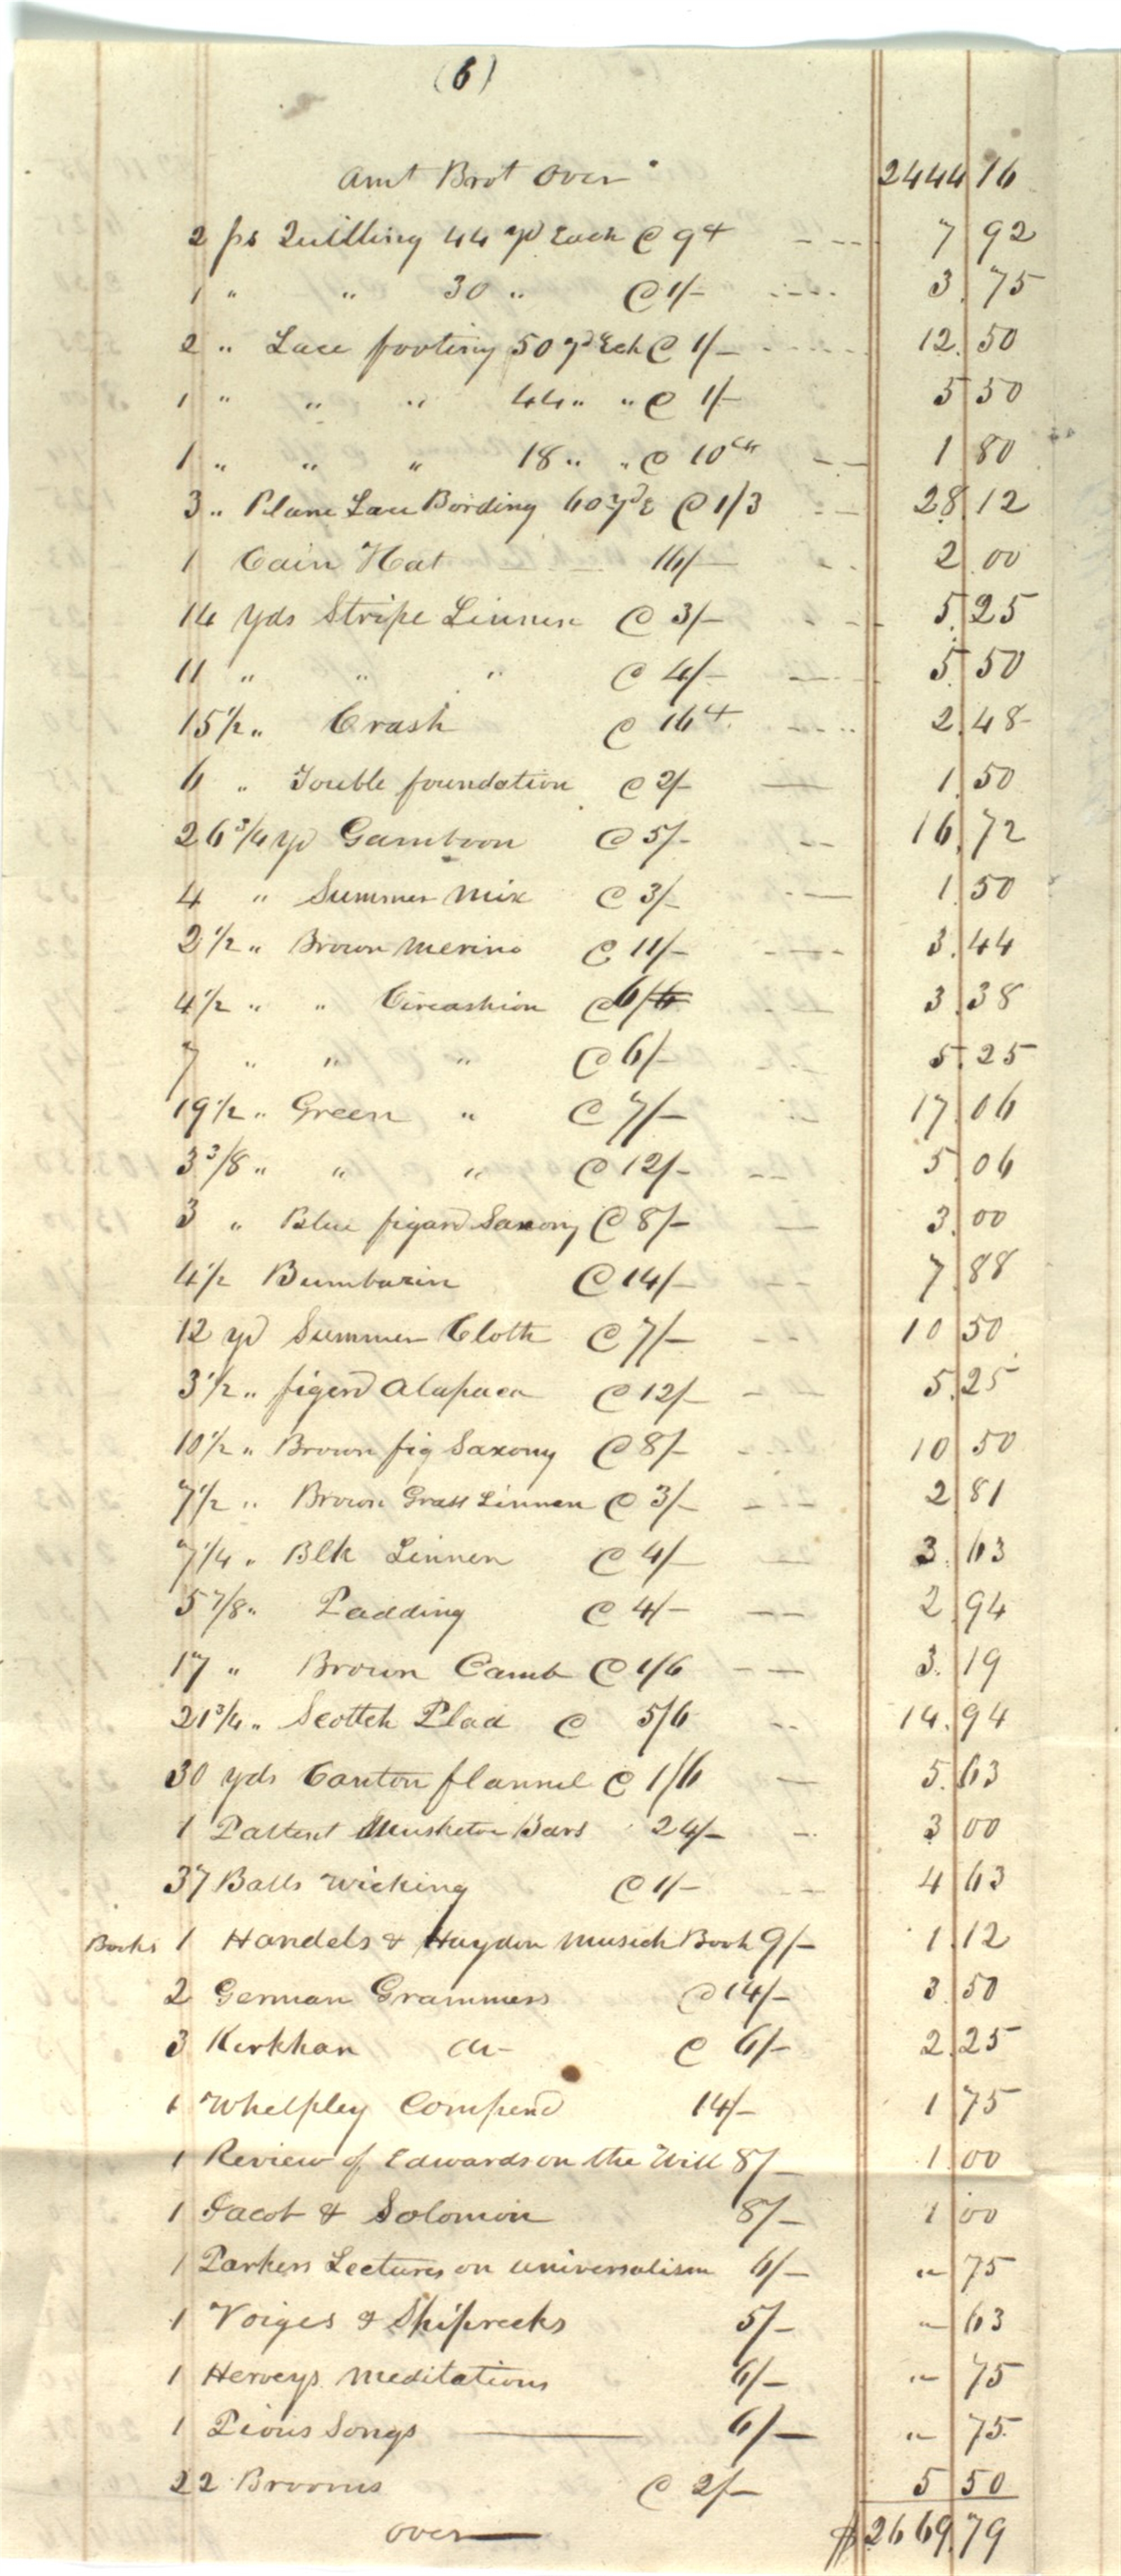 (6)
Amt Brot Over 2444 16
2 ps Quilling 44 yd Each @ 9 cts 7 92
1 " " 30 " @ 1/- 3.75
2 " Lace footing 50 yd Ech @ 1/- 12.50
1 " " " 44 " " @ 1/- 5 50
1 " " " 18 " " @ 10 cts 1 80
3 " Plane Lace Bording 60 yd E @ 1/3 28.12
1 Cain Hat 16/- 2.00
14 yds Stripe Linnen @ 3/- 5.25
11 " " " @ 4/- 5.50
15 1/2 " Crash @ 16 cts 2.48
6 " Double foundation @ 2/- 1.50
26 3/4 yd Gamboon @ 5/- 16.72
4 " Summer Mix @ 3/- 1.50
2 1/2 " Brown Merino @ 11/- 3.44
4 1/2 " " Circashion @ 6/ 3.38
7 " " " @ 6/- 5.25
19 1/2 " Green " @ 7/- 17.06
3 3/8 " " " @ 12/- 5.06
3 " Blue figard Saxony @ 8/- 3.00
4 1/2 Bumbazin @ 14/- 7.88
12 yd Summer Cloth @ 7/- 10 50
3 1/2 " figerd Alapaca @ 12/- 5.25
10 1/2 " Brown fig Saxony @ 8/- 10 50
7 1/2 " Brown Grass Linnen @ 3/- 2 81
7 1/4 " Blk Linnen @ 4/- 3.63
5 7/8 " Padding @ 4/- 2.94
17 " Brown Camb @ 1/6 3.19
21 3/4 " Scottch Plad @ 5/6 14.94
30 yds Canton flannel @ 1/6 5.63
1 Pattent Musketoe Bars 24/- 3 00
37 Balls Wicking @ 1/- 4 63
Books 1 Handels & Haydon Musick Book 9/- 1.12
2 German Grammers @ 14/- 3.50
3 Kirkhan do @ 6/- 2.25
1 Whelpley Compend 14/- 1 75
1 Review of Edwards on the Will 8/- 1.00
1 Jacob & Solomon 8/- 1 00
1 Parkers Lectures on universalism 6/- " 75
1 Voiges & Shiprecks 5/- " 63
1 Herveys Meditations 6/- " 75
1 Pious Songs 6/- " 75
22 Brooms @ 2/- 5 50
over $2669.79